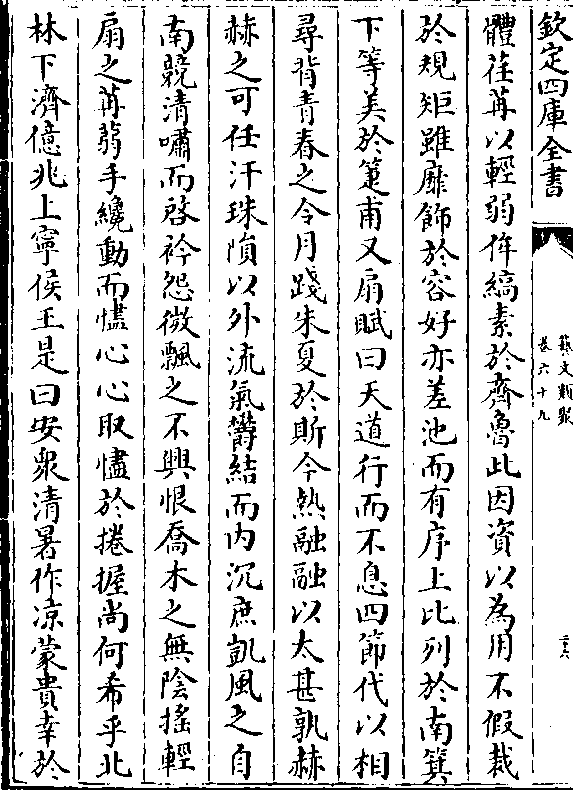 欽定四庫全書
藝文類聚
卷六十九
二十六
體荏苒以輕弱侔縞素於齊魯此因資以為用不假裁
於規矩雖靡飾於容好亦差池而有序上比列於南箕
下等美於箑甫又扇賦曰天道行而不息四節代以相
尋背青春之令月踐朱夏於斯今熱融融以太甚孰赫
赫之可任汗珠隕以外流氣鬱結而内沉庶凱風之自
南競清嘯而啓衿怨微飄之不興恨喬木之無陰搖輕
扇之苒蒻手纔動而懾心心取懾於捲握尚何希乎北
林下濟億兆上寧侯王是曰安衆清暑作凉蒙貴幸於